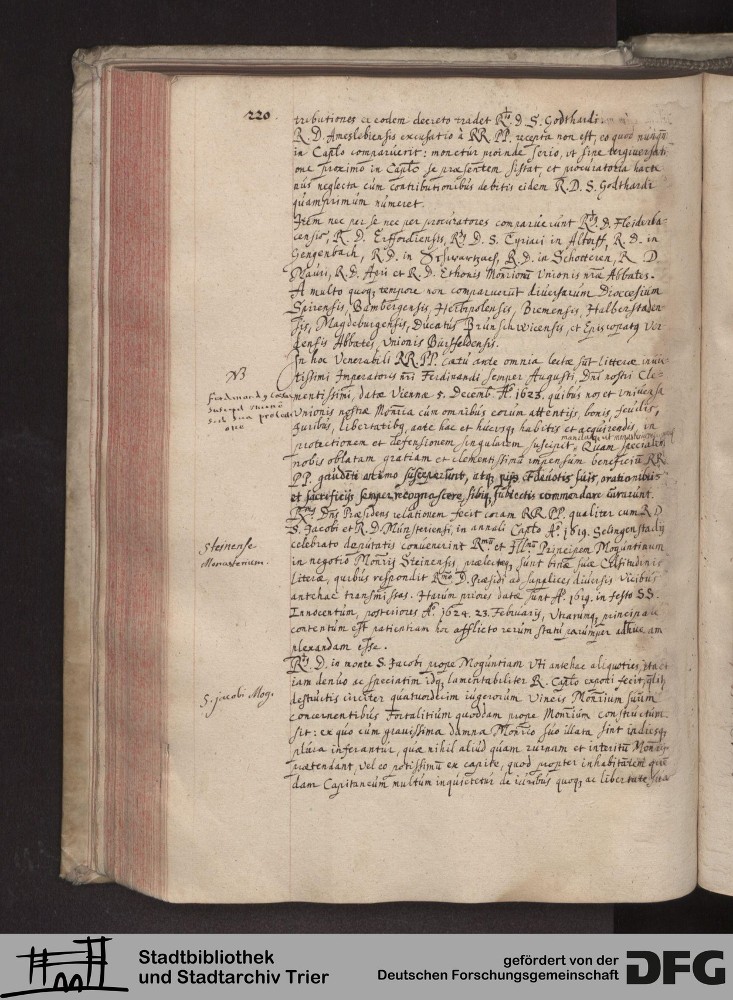 220
tributiones ex eodem decreto tradet R.dus d. S. Godthardi
R. D. Ameslebiensis excusatio à RR. PP. recepta non est, eo quod nunquā
in Capłō comparuerit: monetur proinde serio, vt sine tergiversati
one proximo in Capłō se praesentem sistat, et procuratoria hacte
nus neglecta cum contributionibus debitis eidem R. D. S. Godthardi
quamprimum numeret.
Item nec per se nec per procuratores comparuerunt R.dus D.
censis, R. D. Erffordiensis, R.dus D. S. Cyriaci in Altorff, R. D. in
Gengenbach, R. D. in Schwartzach, R. D. in Schotteren, R D
Mauri, R. D. Apri et R. D. Ethonis Monriorum Unionis nrae Abbates.
A multo quoq; tempore non comparuerūt diversarum Dioecesium
Spirensis, Bambergensis, Herbipolensis, Bremensis, Halberstaden
sis, Magdeburgensis, Ducatus Brunschwicensis, et Episcopatq Ver
densis Abbates, Unionis Bursfeldensis.
In hoc Venerabili RR. PP. Caetu ante omnia lectae sūt litterae invic
NB
tissimi Imperatoris nri Ferdinandi semper Augusti, Dni nostri Cle-
Ferdinandq Caesar
mentissimi, datae Viennae 5. Decemb. A.o 1623. quibus nos et universa
suscepit unionē
Unionis nostrae Monria cum omnibus eorum attentijs, bonis, feudis,
sub sua protecti
one
Juribus, libertatibq, ante hac et hucusq; habitis et acquirendis, in
protectionem et defensionem singularem suscipit. Quam specialem
nobis oblatam gratiam et clementissimā impensum beneficiū RR
PP. gaudēti animo susceperunt, atq; pijs et devotis suis, orationibus
et sacrificijs semper recognoscere, sibiq; subiectis commendare curarunt.
R.dus Dns Praesidens relationem fecit coram RR. PP. qualiter cum R. D
S. Jacobi et R. D. Münsteriensi, in annali Capłō A.o 1619. Selingenstadij
Steinense
Monasterium.
celebrato deputatis convenerint R.mū et Ill.mū Principem Moguntinum
in negotio Monrij Steinensis, praelectaeq; sunt binae suae Celsitudinis
literae, quibus respondit R.mo D. Praesidi ad supplices diversis vicibus
antehac transmissas. Harum priores datae sunt A.o 1619. in festo SS.
Innocentum, posteriores A.o 1624. 23. Februarij, Utrarumq; principale
contentum est patientiam hoc afflicto rerum statu parumper adhuc am
plexandam esse.
R.dus D. in monte S. Jacobi prope Moguntiam Uti antehac aliquoties,
S. Jacobi Mog.
iam denuo ac speciatim idq; lamentabiliter R. Capłō exponi fecit,
destructis circiter quatuordecim iugerorum Vineis Monrium suum
concernentibus Fortalitium quoddam prope Monrium constructum
sit: ex quo cum gravissima damna Monrio suo illata sint indiesq;
plura inferantur, quae nihil aliud quam ruinam et interitū
praetendant, vel eo potissimū ex capite, quod propter inhabitātem quē
dam Capitaneum multum inquietetur de iuribus quoq; ac libertate sua
Stadtbibliothek
und Stadtarchiv Trier
gefördert von der
Deutschen Forschungsgemeinschaft
DFG